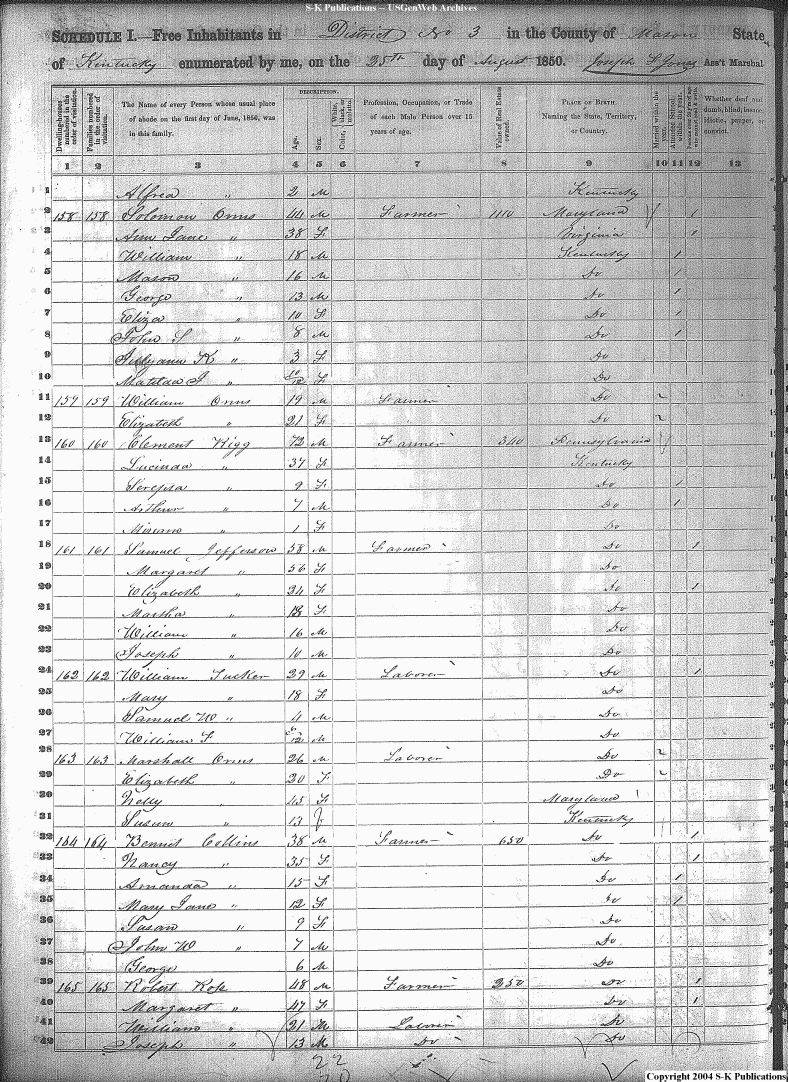 S-K Publications – USGenWeb Archives
SCHEDULE I.—Free Inhabitants in District No 3 in the County of Mason State
of Kentucky enumerated by me, on the 25th day of August 1850. Joseph Ass't Marshal
Dwelling-houses numbered in the order of visitation.
Families numbered in the order of visitation.
The Name of every Person whose usual place of abode on the first day of June, 1850, was in this family.
DESCRIPTION.
Age.
Sex.
Color, White, black, or mulatto.
Profession, Occupation, or Trade of each Male Person over 15 years of age.
Value of Real Estate owned.
PLACE OF BIRTH Naming the State, Territory, or Country.
Married within the year.
Attended School within the year.
Whether deaf and dumb, blind, insane, idiotic, pauper, or convict.
1 2 3 4 5 6 7 8 9 10 11 12 13
1 Alfred " 2 M Kentucky
2 158 158 Solomon Orms 44 M Farmer 1110 Maryland / 1
3 Ann Jane " 38 F Virginia 1
4 William " 18 M Kentucky 1
5 Mason " 16 M Do 1
6 George " 13 M Do 1
7 Eliza " 10 F Do 1
8 John S " 8 M Do 1
9 K " 3 F Do
10 Matilda J " 10/12 F Do
11 159 159 William Orms 19 M Farmer Do
12 Elizabeth " 21 F Do
13 160 160 Clement Rigg 72 M Farmer 340 Pennsylvania /
14 Lucinda " 37 F Kentucky
15 " 9 F Do 1
16 Arthur " 7 M Do 1
17 " 1 F Do
18 161 161 Samuel Jefferson 58 M Farmer Do 1
19 Margaret " 56 F Do
20 Elizabeth " 24 F Do 1
21 Martha " 18 F Do
22 William " 16 M Do
23 Joseph " 10 M Do
24 162 162 William Tucker 29 M Laborer Do 1
25 Mary " 18 F Do
26 Samuel W " 4 M Do
27 William F 6/12 M Do
28 163 163 Marshall Orms 26 M Laborer Do
29 Elizabeth " 20 F Do
30 Nelly " 45 F Maryland 1
31 Susan " 13 F Kentucky
32 164 164 Bennet Collins 38 M Farmer 650 Do 1
33 Nancy " 35 F Do 1
34 Amanda " 15 F Do 1
35 Mary Jane " 12 F Do 1
36 Susan " 9 F Do
37 John W " 7 M Do
38 George 6 M Do
39 165 165 Robert 48 M Farmer 250 Do 1
40 Margaret " 47 F Do 1
41 William " 21 M Laborer Do
42 Joseph " 13 M Do Do
22
20
Copyright 2004 S-K Publications